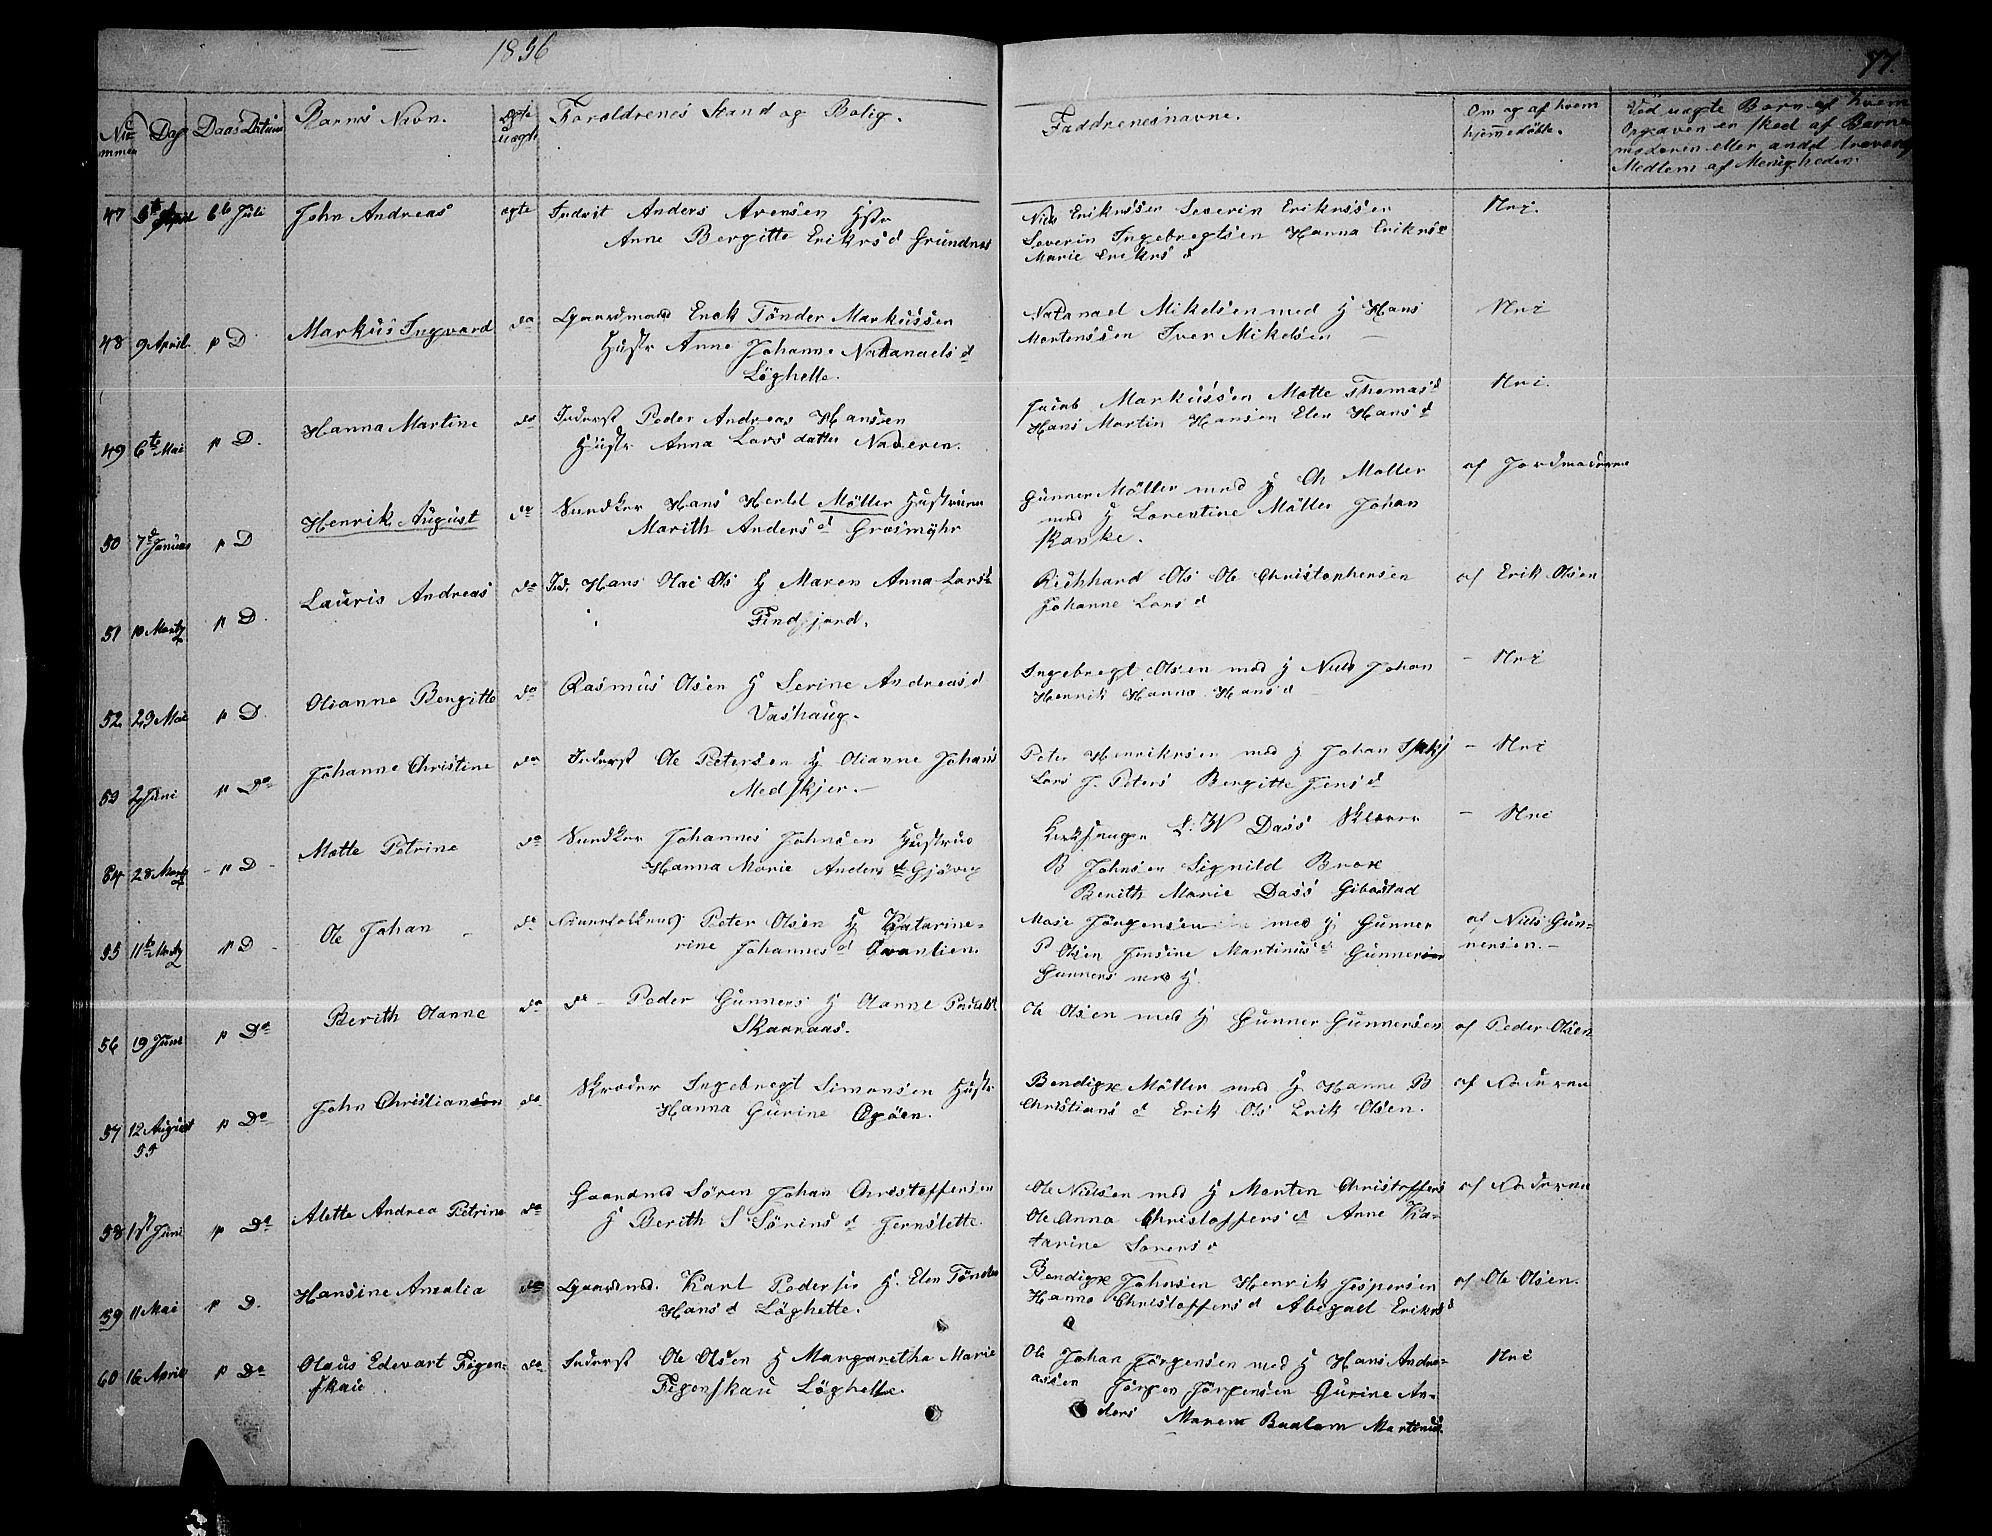 1856
77.
Nu- mmer Dag Daabs Datum Barns Navn. ægte uægte Forældrenes Stand og Bolig. Faddrenesnavne. Om og af hvem hjemmedøbte. Ved uægte Børn af hvem
Opgaven en sked af Barne
moderen eller andet troværdg
Medlem af Menigheden.
47 6te Juli John Andreas ægte Inderst Anders Arensen Hstr
Anne Bergitte Eriks d Grundnes
Niels Erikssen Severin Erikssen
Severin Ingebregtsen Hanna Eriks d
Marie Eriks d
Nei.
48 9 April p D. Markus Ingvard do Lgaardmand Enok Tönder Markussen
Hustr Anne Johanne Natanaels d
Löghelle.
Natanael Mikelsen med H Hans
Mortenssen Iver Mikelsen
Nei
49 6te Mai p D. Hanna Martine do Inderst Peder Andreas Hansen
Hustr Anna Lars datter Naveren.
Jacob Markussen Mette Thomas d
Hans Martin Hansen Elen Hans d
Nei.
50 7d Januar p D Henrik August do Snedker Hans Hertel Möller Hustruen
Marith Anders d Grasmyhr
Gunner Möller med H Ch Möller
med H Lorentine Möller Johan
Skanke.
af Jordmoderen
51 10 Marty p D. Lauris Andreas do Ind. Hans Olai Ols H Maren Anna Lars d
Findfjord.
Richhard Ols Ole Christophersen
Johanne Lars d
af Erik Olsen
52 29 Mai p D. Olianna Bergitte do Rasmus Olsen H Serine Andreas d
Vashaug.
Ingebregt Olsen med H Niels Johan
Henrik Hanna Hans d
- Nei
53 2 Juni p Do Johanne Christine do Inderst Ole Petersen H Olianne Johans
Medskjer.
Peter Henriksen med H Johan
Lars J. Peters Bergitte Jens d
- Nei
54 28 Marty p D Mette Petrine do Snedker Johannes Johnsen Hustrue
Hanna Marie Anders d Gjövig
Kirksanger L: W Dass Sklærer
B Johnsen Signild Brox
Berith Marie Dass Gibostad
- Nei
55 11te Marty p D Ole Johan do Peter Olsen H Katarine-
rine Johannes d Qvanlien.
Mose Jörgensen med H Gunner
P Olsen Jensine Martinus d
Gunners med H.
af Niels Gun-
nersen.
56 19 Juni p Do Berith Olanne do do - Peder Gunners H Olanne
Skaaraas.
Ole Olsen med H Gunner Gunnersen
af Peder Olsen
57 12 August p Do John Christian do Skræder Ingebregt Simonsen Hustr
55
Hanna Gurine
Bendigx Möller med H Hanne B
Christians d Erik Ols Erik Olsen.
af Faderen
58 1st Juni p Do Alette Andrea Petrine do Gaardmd Sören Johan Christoffersen
H Berith S Sörins d Jernslette.
Ole Nielsen med H Morten Christoffers
Ole Anna Christoffers d Anne Ka-
tarine Sörens d
af Faderen
59 11 Mai p D. Hansine Amalia do Lgaardmd. Karl Pedersen H. Elen Tönder
Hans d Löghelle.
Bendigx Johnsen Henrik Jespersen
Hanna Christoffers d Abegael Eriks d
af Ole Olsen.
60 16 April p Do Olaus Edevart Figen- do Inderst Ole Olsen H Margaretha Marie
skau
Figenskau Löghelle.
Ole Johan Jörgensen med H Hans Andre-
assen Jörgen Jörgensen Gurine An-
ders Maren Martinus.
Nei